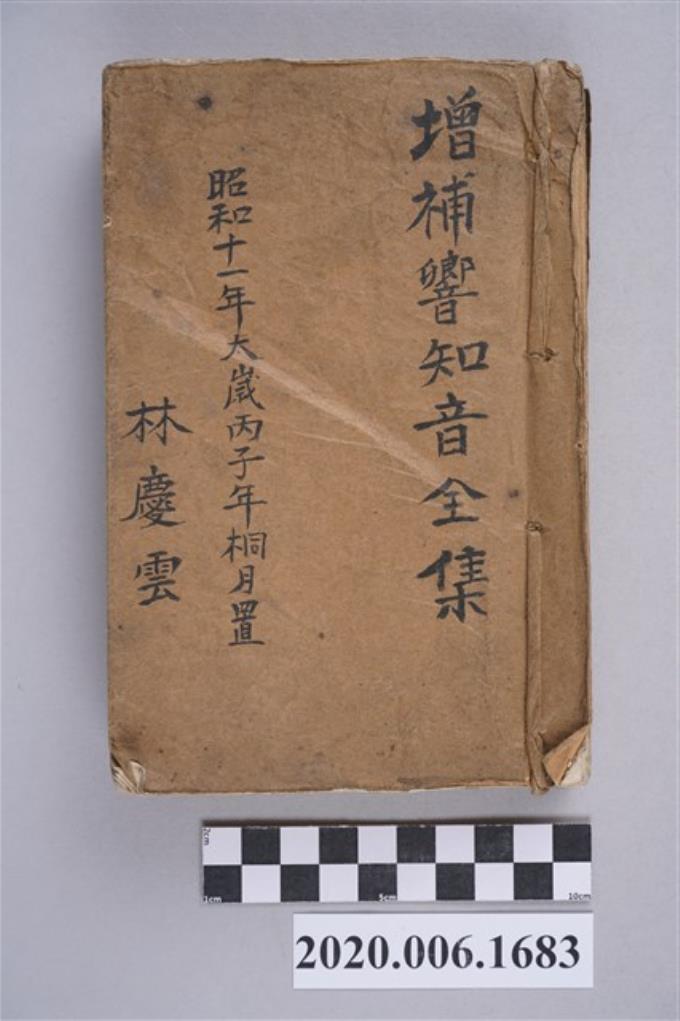 增補響知音全集
昭和十一年大歲丙子年桐月置
林慶雲
2cm
1cm
5cm
10cm
2020.006.1683